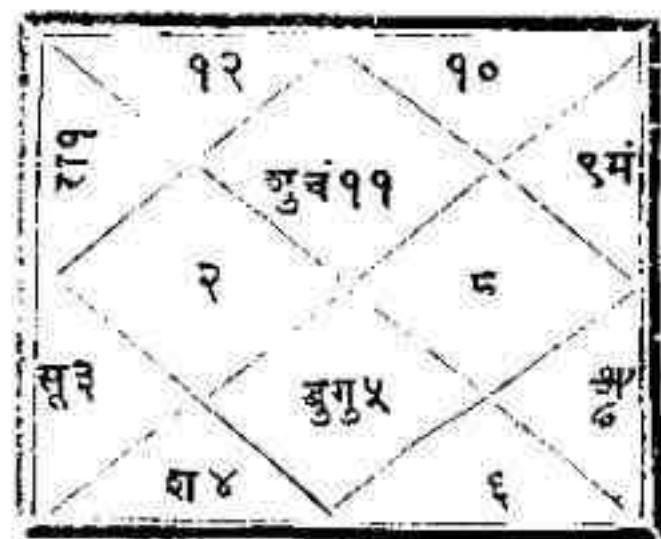 १२
१०
रा१
शु चं ११
९मं
२
८
सू३
बुगु५
श४
६